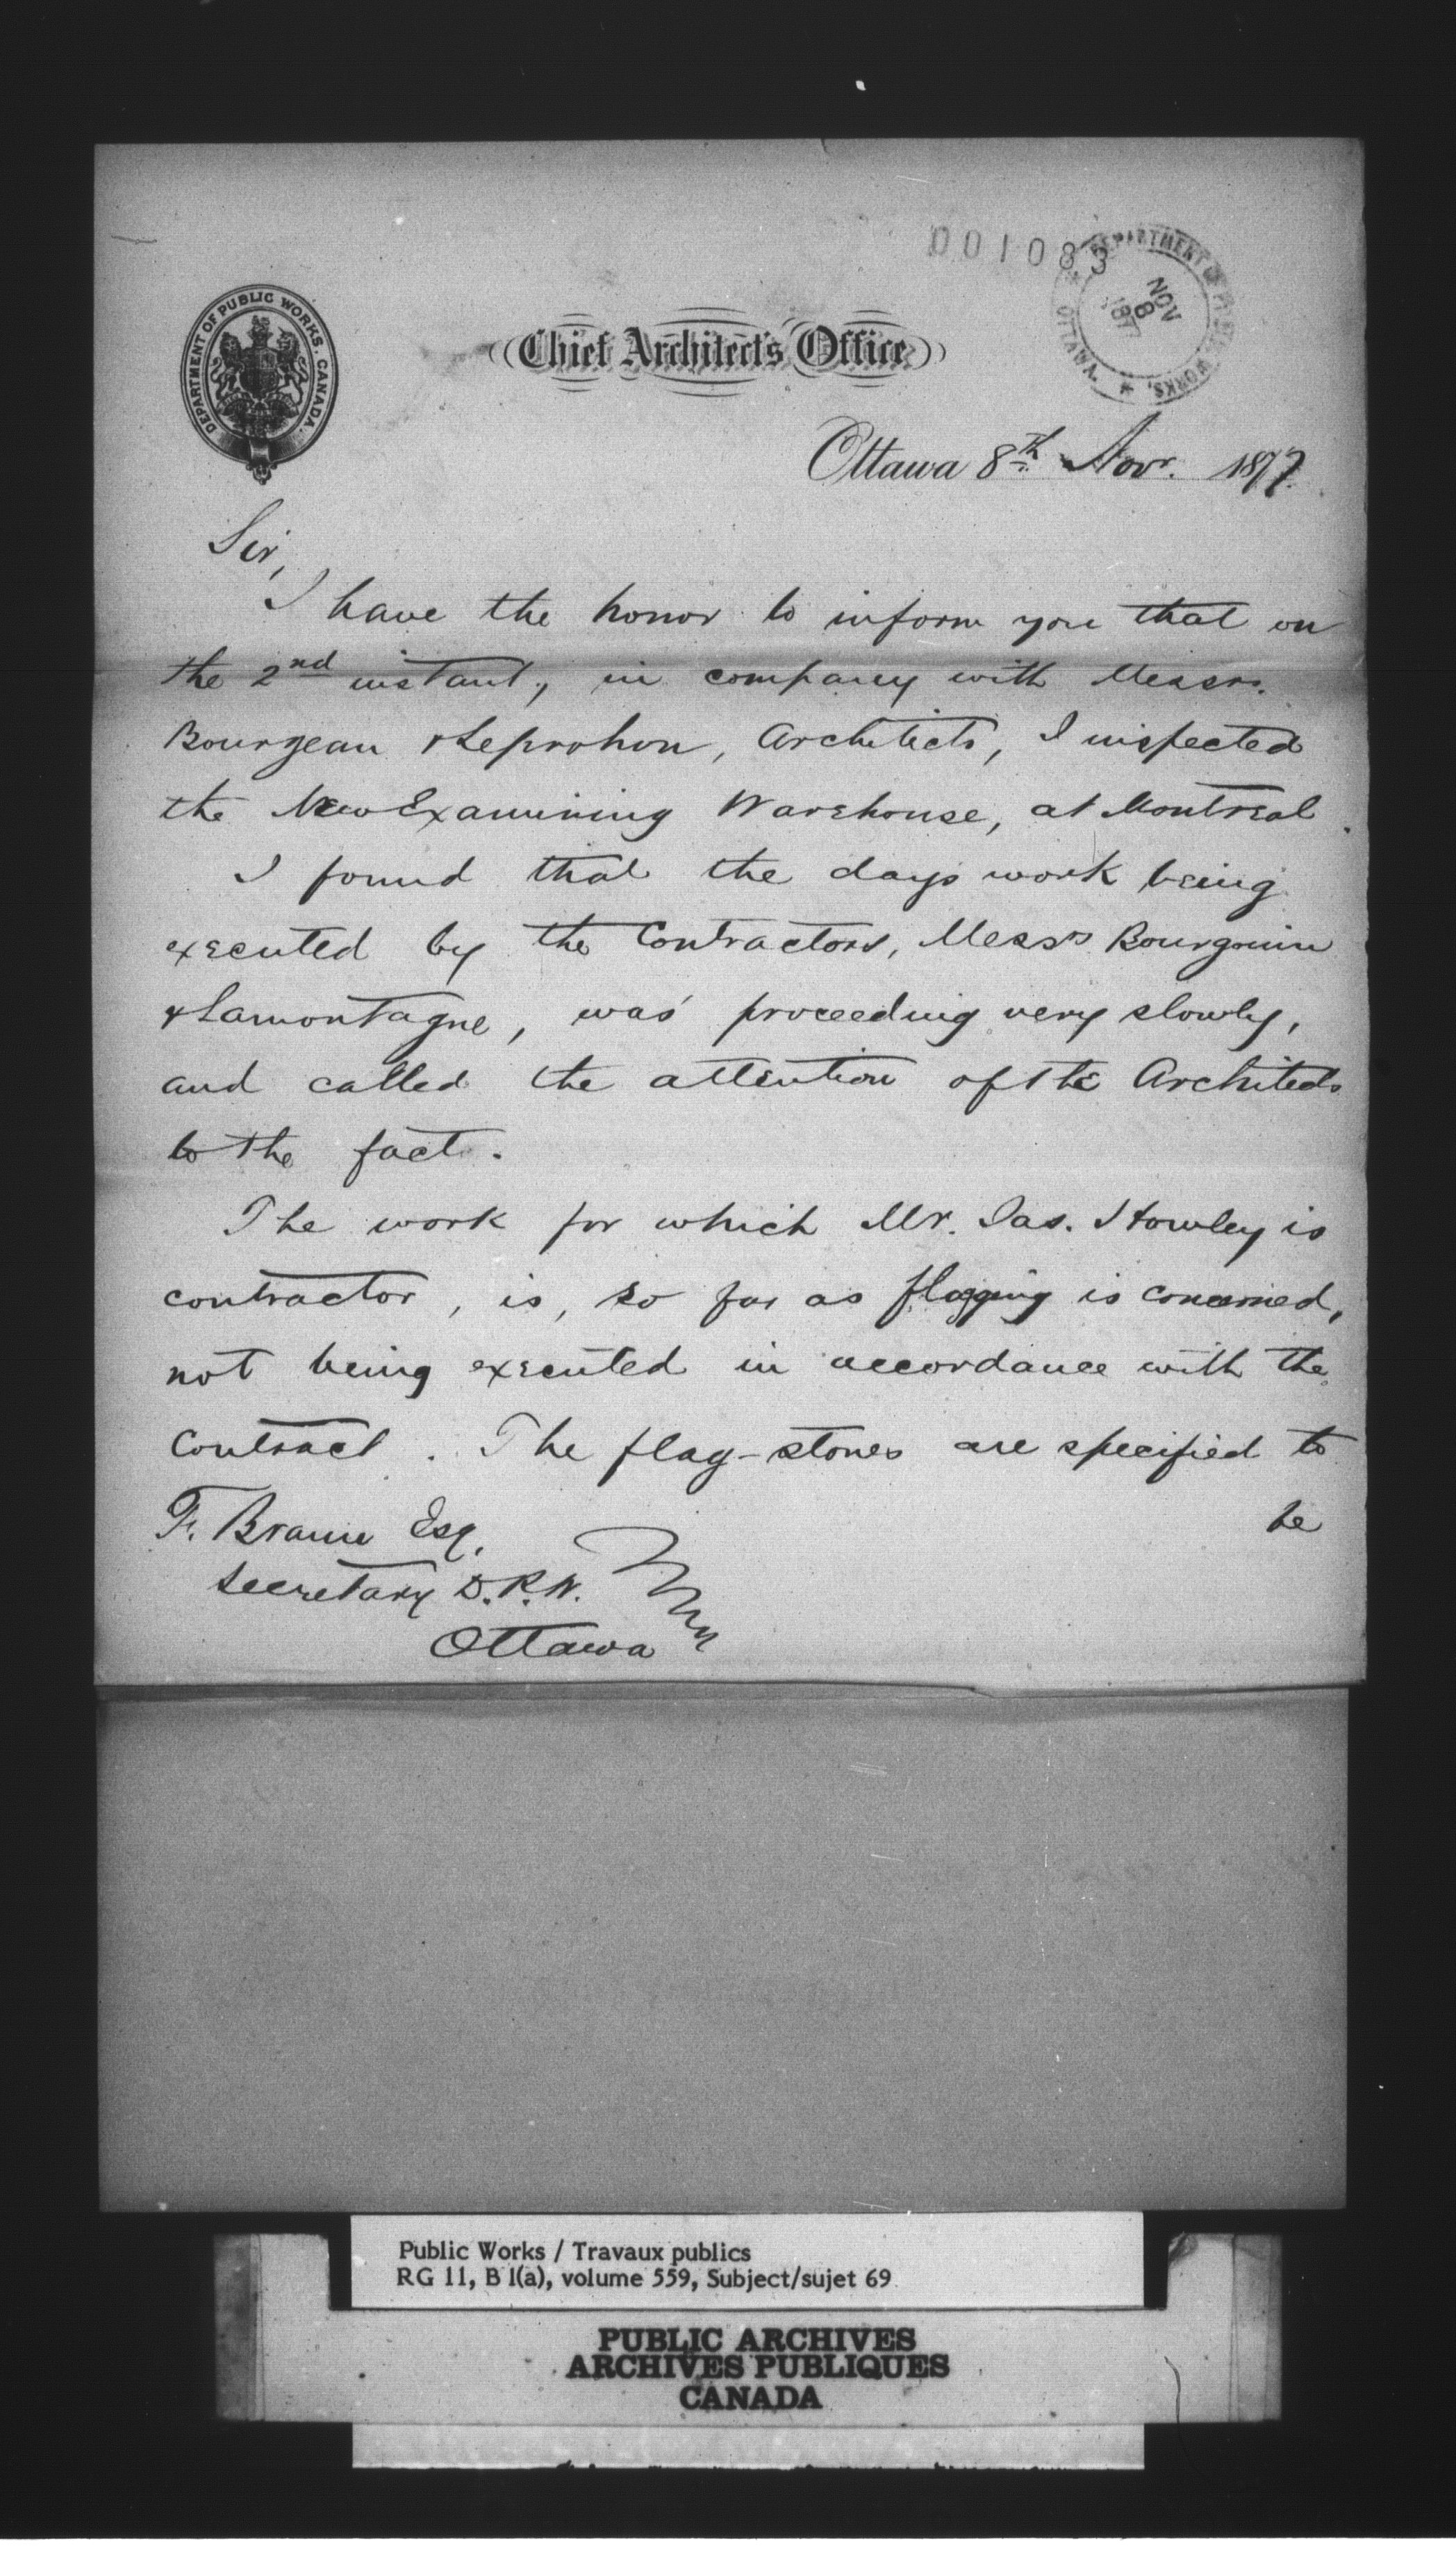 001083
DEPARTMENT OF PUBLIC WORKS, OTTAWA
NOV
8
187
DEPARTMENT OF PUBLIC WORKS, CANADA.
Chief Architect's Office
Ottawa 8th Novr. 1877
Sir,
I have the honor to inform you that on
the 2nd instant, in company with Messrs.
Bourgeau & Leprohon, Architects, I inspected
the New Examining Warehouse, at Montreal.
I found that the days work being
executed by the Contractors, Messrs Bourgouin
& Lamontagne, was proceeding very slowly,
and called the attention of the Architects
to the fact.
The work for which Mr. Jas. Howley is
contractor, is, so far as flagging is concerned,
not being executed in accordance with the
Contract. The flag-stones are specified to
be
F. Braun Esq.
Secretary D.P.W.
Ottawa
Public Works / Travaux publics
RG 11, B 1(a), volume 559, Subject/sujet 69
PUBLIC ARCHIVES
ARCHIVES PUBLIQUES
CANADA